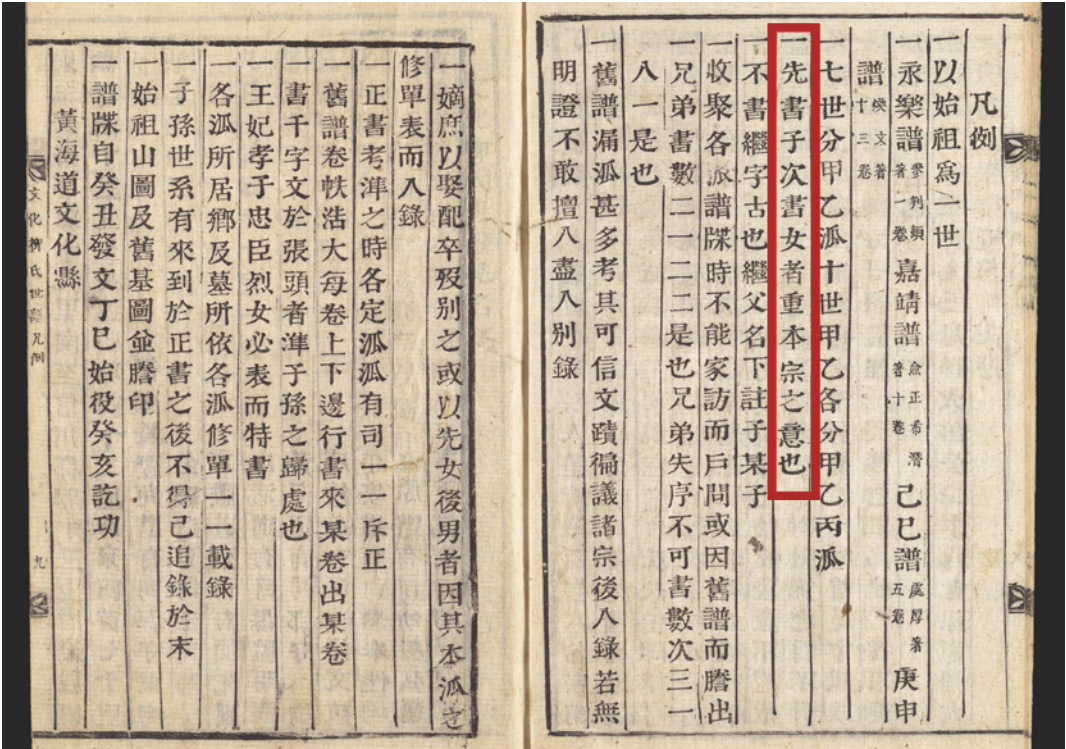 凡例
一以始祖爲一世
一永樂譜 參判潁著一卷 嘉靖譜 僉正希潛著十卷 己巳譜 處厚著五卷 庚申
譜 煐文著十三卷
一七世分甲乙派十世甲乙各分甲乙丙派
一先書子次書女者重本宗之意也
一不書繼字古也繼父名下註子某子
一收聚各派譜牒時不能家訪而戶問或因舊譜而謄出
兄弟書數一一二二是也兄弟失序不可書數次三一
八一是也
一舊譜漏派甚多考其可信文蹟徧議諸宗後入錄若無
明證不敢擅入盡入別錄
一嫡庶以娶配卒歿别之或以先女後男者因其本派之
修單表而入錄
一正書考準之時各定派派有司一一斥正
一舊譜卷帙浩大每卷上下邊行書來某卷出某卷
一書千字文於張頭者準子孫之歸處也
一王妃孝子忠臣烈女必表而特書
一各派所居鄕及墓所依各派修單一一載錄
一子孫世系有來到於正書之後不得已追錄於末
一始祖山圖及舊基圖並謄印
一譜牒自癸丑發文丁巳始役癸亥訖功
黃海道文化縣
文化柳氏世譜凡例
九